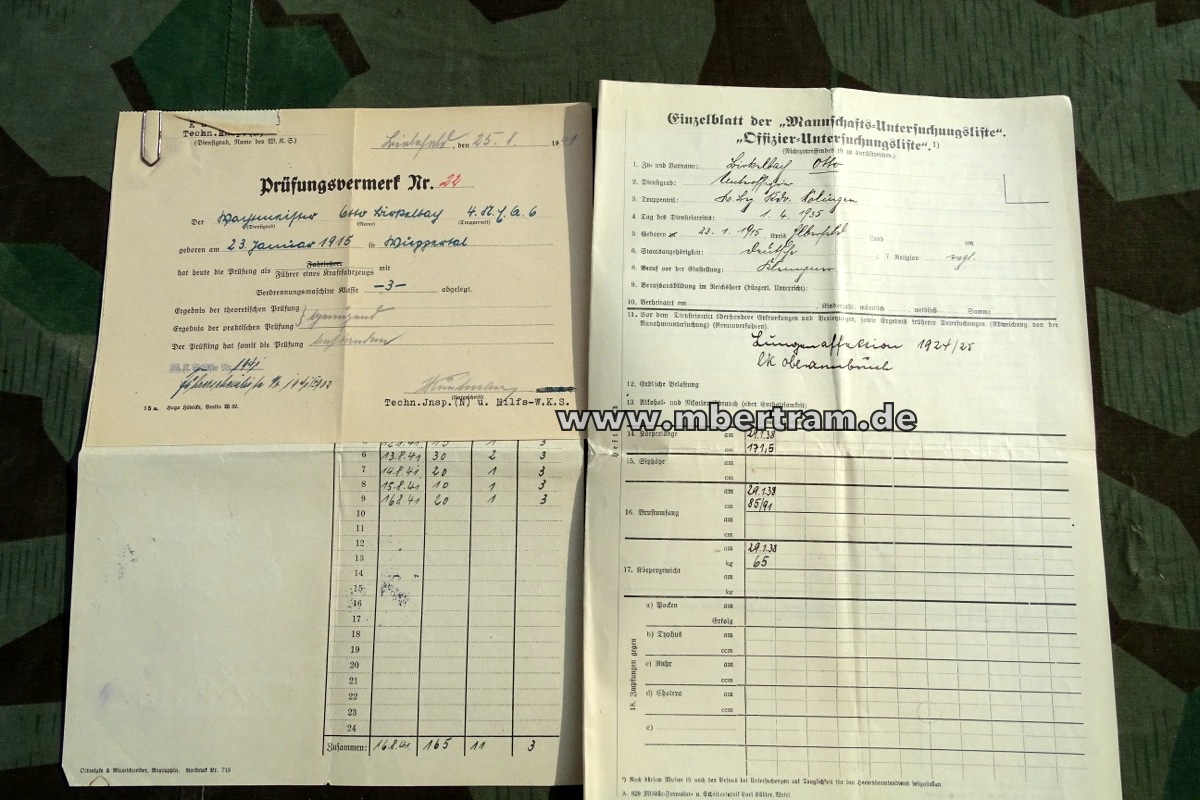 Techn.Insp.(N)
(Dienstgrad, Name des W.K.S.)
Bielefeld, den 25. 8. 1941
Prüfungsvermerk Nr. 22
Der Wachtmeister Otto Birkelbach
(Dienstgrad) (Name) (Truppenteil)
geboren am 23. Januar 1915 in Wuppertal
hat heute die Prüfung als Fahrlehrer mit
Führer eines Kraftfahrzeugs
Verbrennungsmaschine Klasse -3- abgelegt.
Ergebnis der theoretischen Prüfung
genügend
Ergebnis der praktischen Prüfung
Der Prüfling hat somit die Prüfung bestanden
(Unterschrift)
Techn.Jnsp.(N) u. Hilfs-W.K.S.
15a. Hugo Hömcke, Berlin W 62.
6 13.8.41 30 2 3
7 14.8.41 20 1 3
8 15.8.41 10 1 3
9 16.8.41 20 1 3
10
11
12
13
14
15
16
17
18
19
20
21
22
23
24
Zusammen: 16.8.41 165 11 3
Vordruck Nr. 713
Einzelblatt der „Mannschafts-Untersuchungsliste“.
„Offizier-Untersuchungsliste“.¹)
(Nichtzutreffendes ist zu durchstreichen.)
1. Zu- und Vorname: Birkelbach Otto
2. Dienstgrad: Unteroffizier
3. Truppenteil: Solingen
4. Tag des Diensteintritts: 1. 4. 1935
5. Geboren 23. 1. 1915 Kreis Elberfeld Land am
6. Staatsangehörigkeit: deutsche ; 7. Religion: evgl.
8. Beruf vor der Einstellung: Klempner
9. Berufsausbildung im Reichsheer (bürgerl. Unterricht):
10. Verheiratet am , Kinderzahl: männlich , weiblich Summe
11. Vor dem Diensteintritt überstandene Erkrankungen und Verletzungen, sowie Ergebnis früherer Untersuchungen (Abweichung von der
Annahmeuntersuchung) (Rentenverfahren).
Lungenaffektion 1924/25
lk Oberarmbruch
12. Erbliche Belastung
13. Alkohol- und Nikotinverbrauch (oder Enthaltsamkeit)
www.mbertram.de
14. Körperlänge am 29.1.38
cm 171,5
15. Sitzhöhe am
cm
am 29.1.38
cm 85/91
16. Brustumfang am
cm
am 29.1.38
kg 65
17. Körpergewicht am
kg
18. Impfungen gegen
a) Pocken am
Erfolg
b) Typhus am
ccm
c) Ruhr am
ccm
d) Cholera am
ccm
e)
¹) Nach diesem Muster ist auch der Befund bei Untersuchungen auf Tauglichkeit für den Heeresbeamtendienst festzustellen.